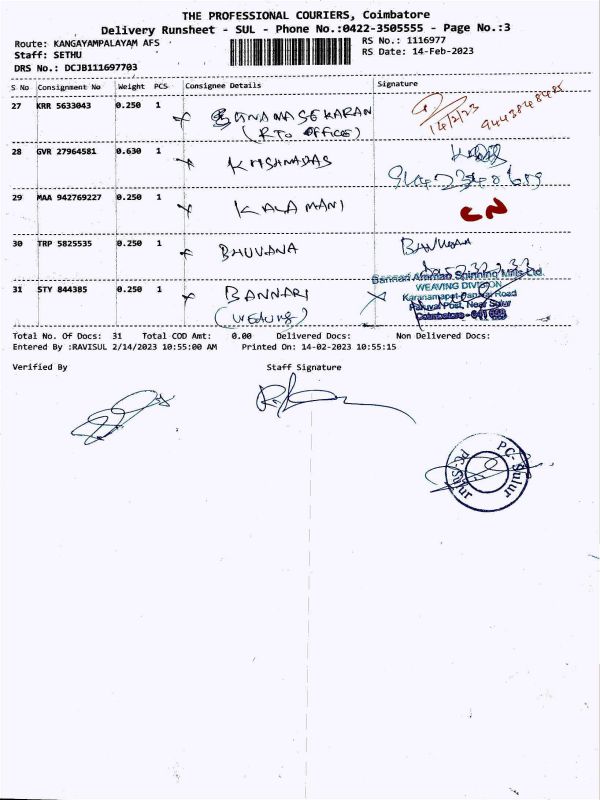 THE PROFESSIONAL COURIERS, Coimbatore
Delivery Runsheet - SUL - Phone No.:0422-3505555 - Page No.:3
Route: KANGAYAMPALAYAM AFS
RS No.: 1116977
Staff: SETHU
RS Date: 14-Feb-2023
DRS No.: DCJB111697703
S No Consignment No Weight PCS Consignee Details Signature
27 KRR 5633043 0.250 1 GUNAMASEKARAN
(RTO OFFICE) 14/2/23 9443848485
28 GVR 27964581 0.630 1 KRISHNADAS
29 MAA 942769227 0.250 1 KALAMANI CN
30 TRP 5825535 0.250 1 BHUVANA
31 STY 844385 0.250 1 BANNARI
Bannari Amman Spinning Mills Ltd.
WEAVING DIVISION
Karanampet-Paruvai Road
Paruvai Post, Near Sulur
Coimbatore - 641 658
Total No. Of Docs: 31 Total COD Amt: 0.00 Delivered Docs: Non Delivered Docs:
Entered By :RAVISUL 2/14/2023 10:55:00 AM Printed On: 14-02-2023 10:55:15
Verified By Staff Signature
PC-Sulur
PC-Sulur